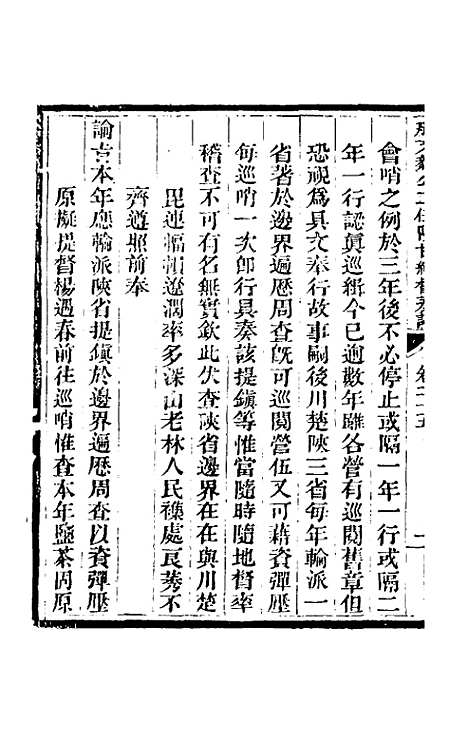 那文毅公二任陝甘總督奏議 卷二十五 二
會哨之例於三年後不必停止或隔一年一行或隔二
年一行認眞巡緝今已逾數年雖各營有巡閱舊章但
恐視爲具文奉行故事嗣後川楚陝三省每年輪派一
省著於邊界遍歷周查旣可巡閱營伍又可藉資彈壓
每巡哨一次卽行具奏該提鎭等惟當隨時隨地督率
稽查不可有名無實欽此伏查陝省邊界在在與川楚
毘連幅𢄙遼濶率多深山老林人民襍處良莠不
齊遵照前奉
諭吉本年應輪派陝省提鎭於邊界遍歷周查以資彈壓
原擬提督楊遇春前往巡哨惟查本年鹽茶固原